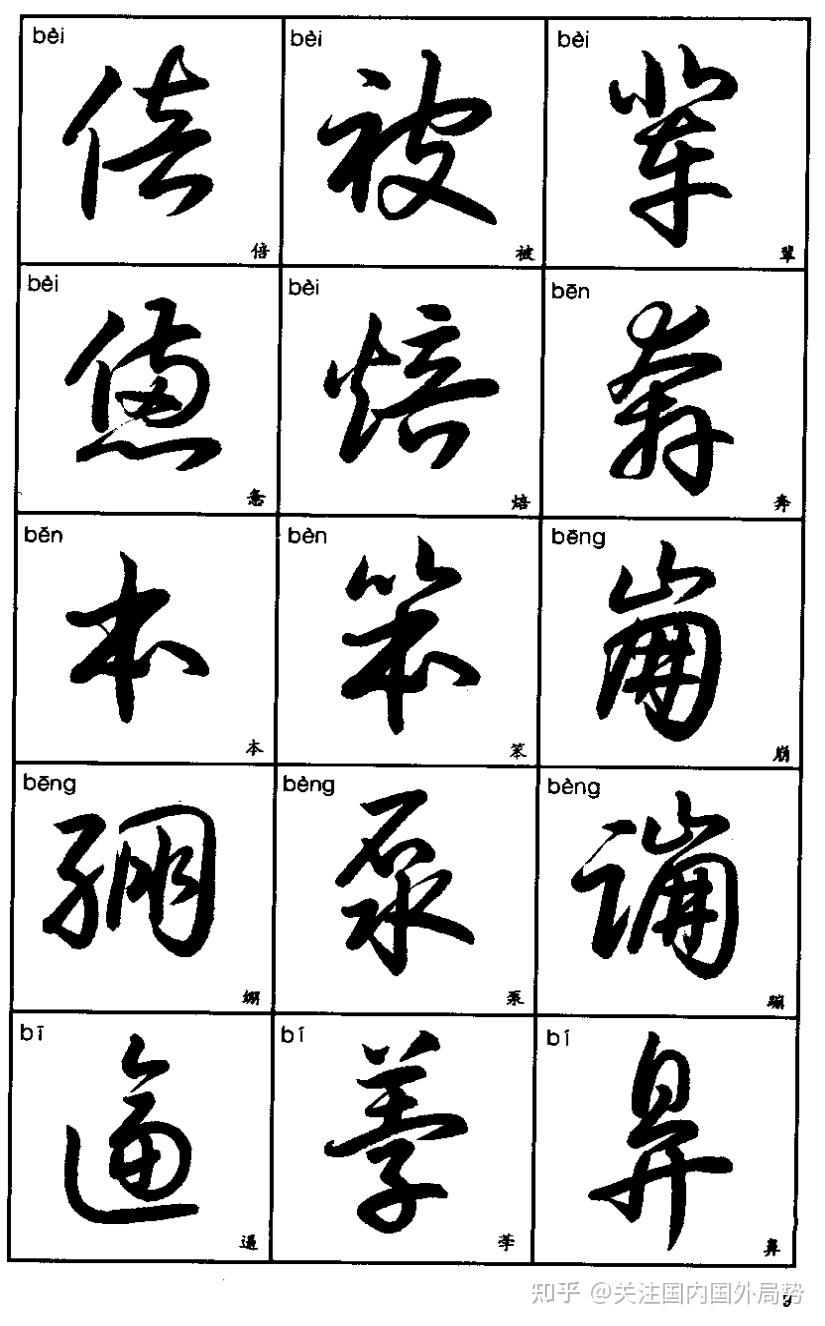 bèi bèi bèi
倍 被 辈
倍 被 辈
bèi bèi bēn
惫 焙 奔
惫 焙 奔
běn bèn bēng
本 笨 崩
本 笨 崩
bēng bèng bèng
绷 泵 蹦
绷 泵 蹦
bī bí bí
逼 荸 鼻
逼 荸 鼻
9
知乎 @关注国内国外局势